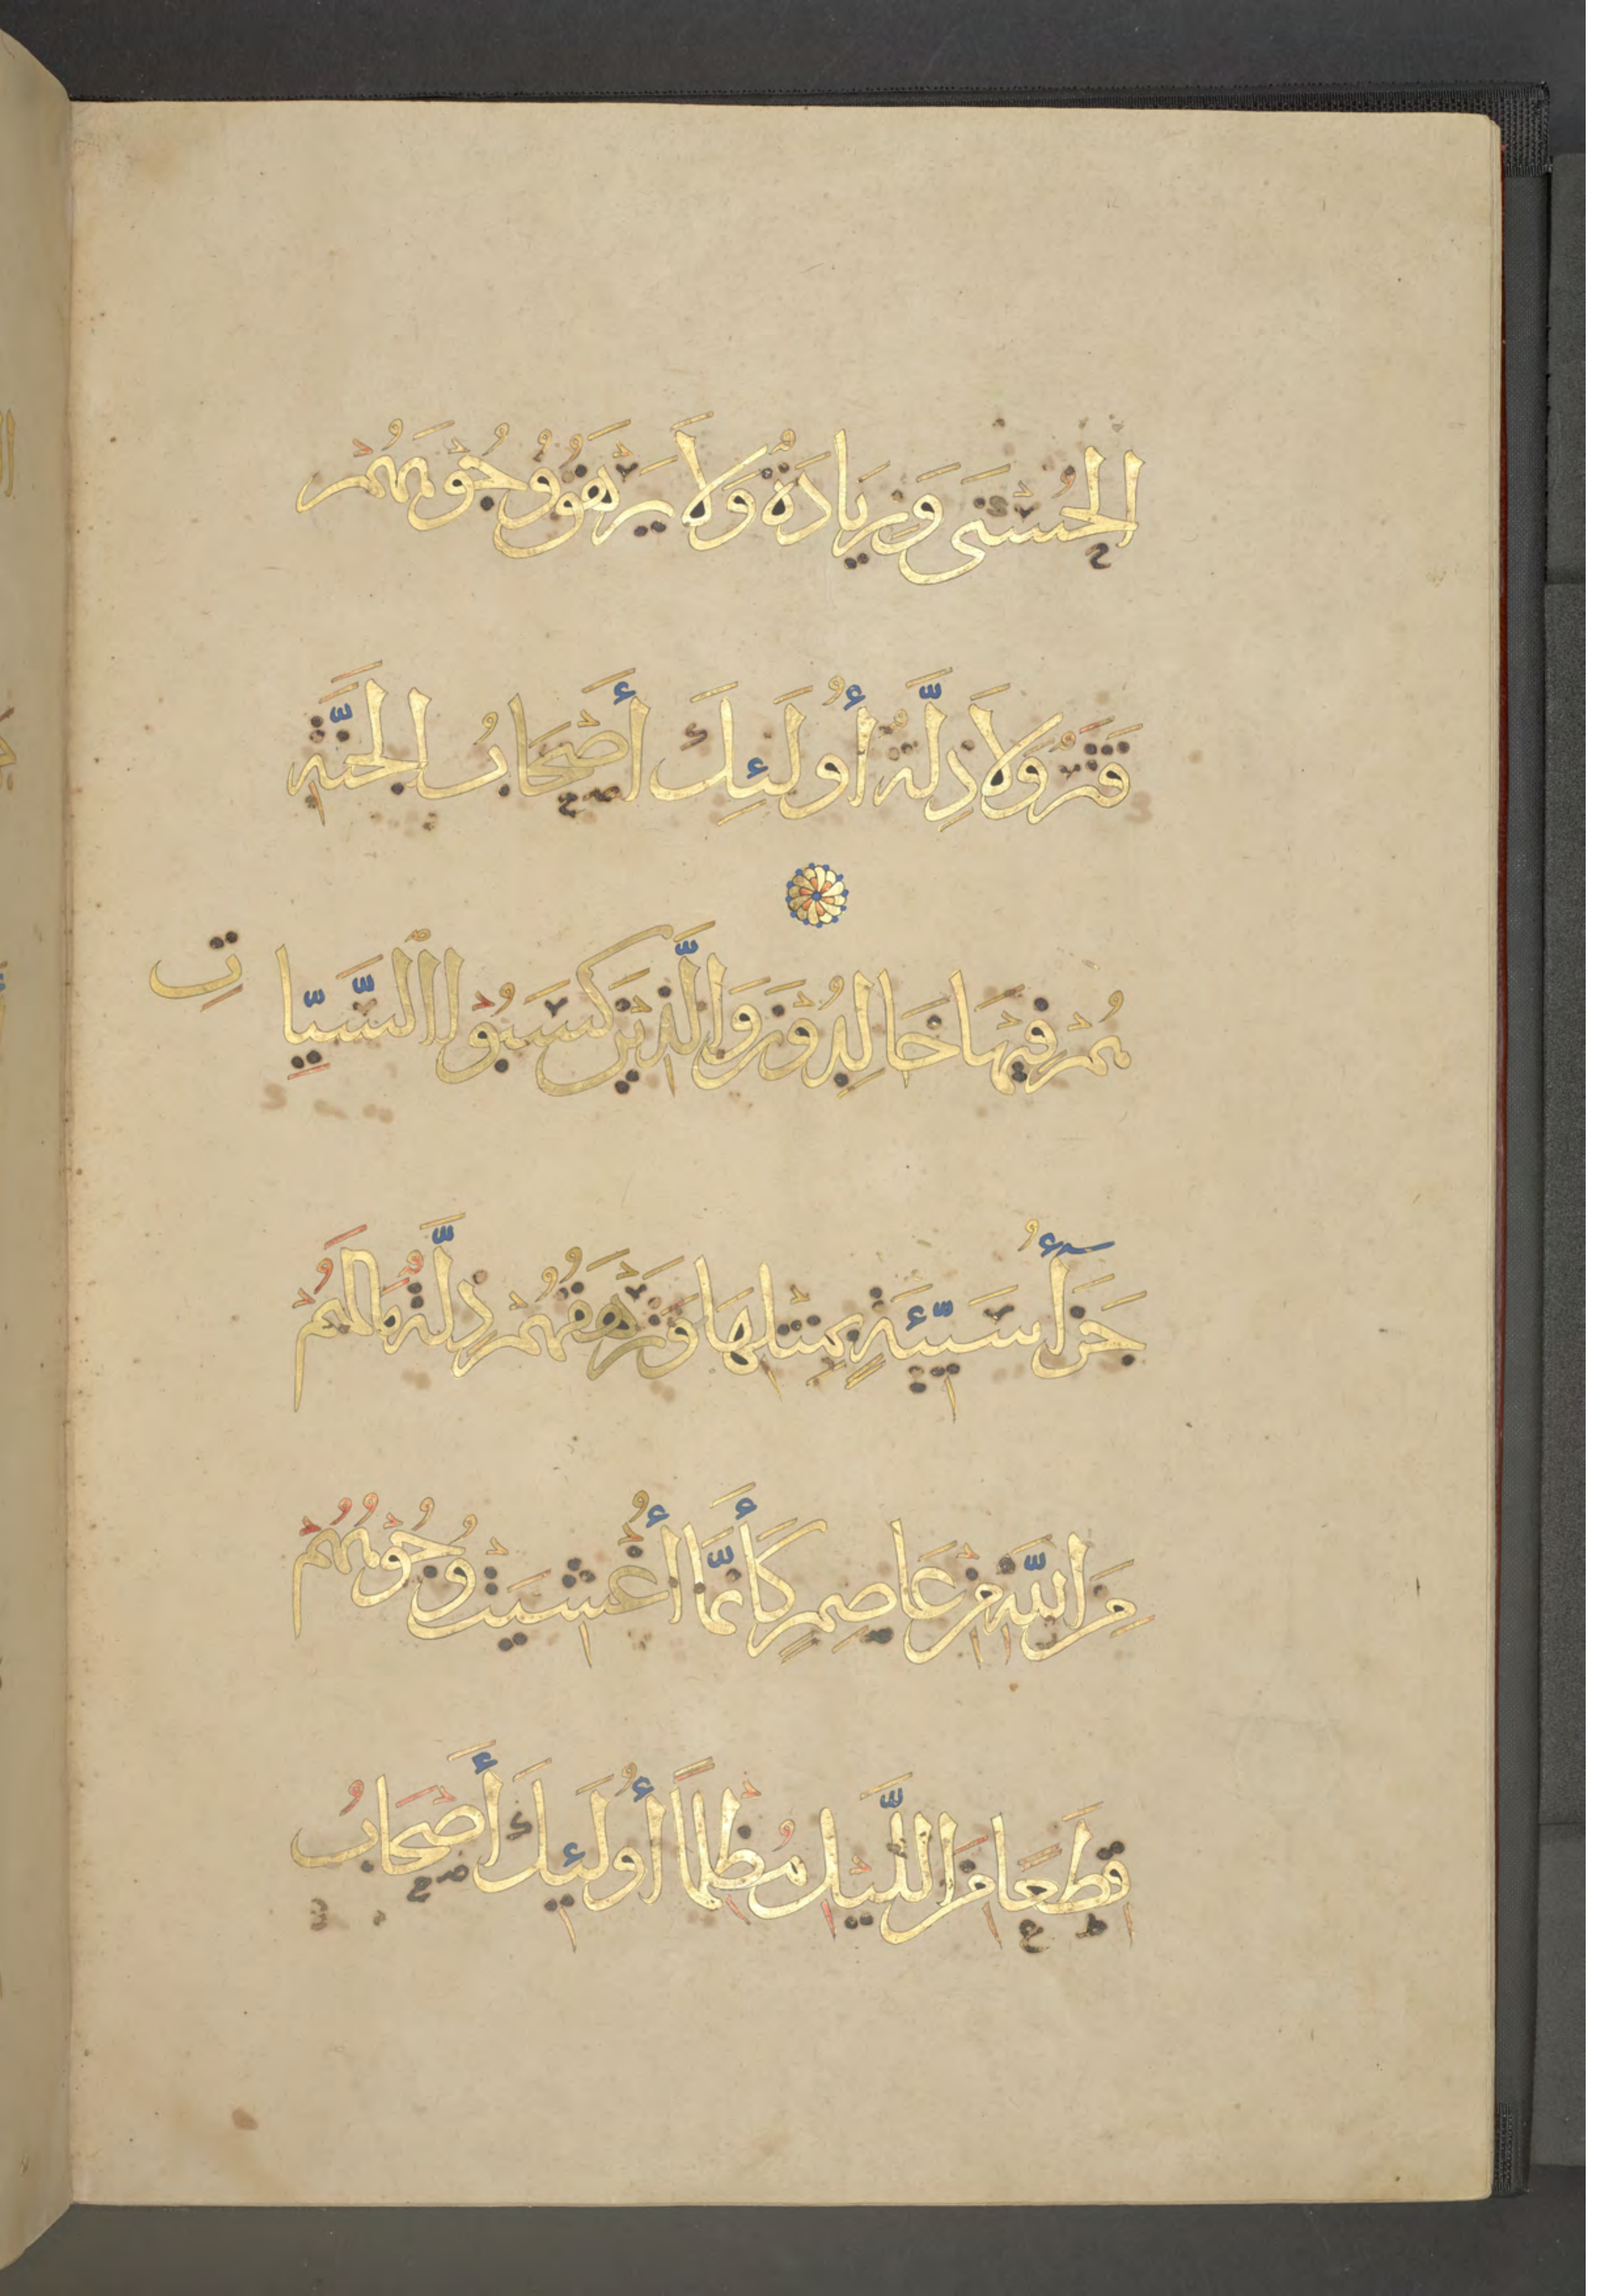 الحُسْنَى وَزِيَادَةٌ وَلَا يَرْهَقُ وُجُوهَهُمْ
قَتَرٌ وَلَا ذِلَّةٌ أُولَئِكَ أَصْحَابُ الجَنَّةِ
هُمْ فِيهَا خَالِدُونَ وَالَّذِينَ كَسَبُوا السَّيِّاتِ
جَزَأُ سَيِّئَةٍ بِمِثْلِهَا وَتَرْهَقُهُمْ ذِلَّةٌ مَا لَهُمْ
مِنَ اللَّهِ مِنْ عَاصِمٍ كَأَنَّمَا أُغْشِيَتْ وُجُوهُهُمْ
قِطَعًا مِنَ اللَّيْلِ مُظْلِمًا أُولَئِكَ أَصْحَابُ